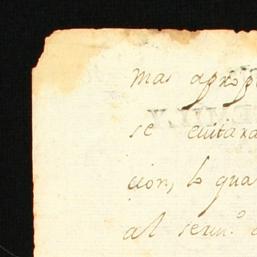 mas aprop
se evitara
cion, lo qua
al serv.º